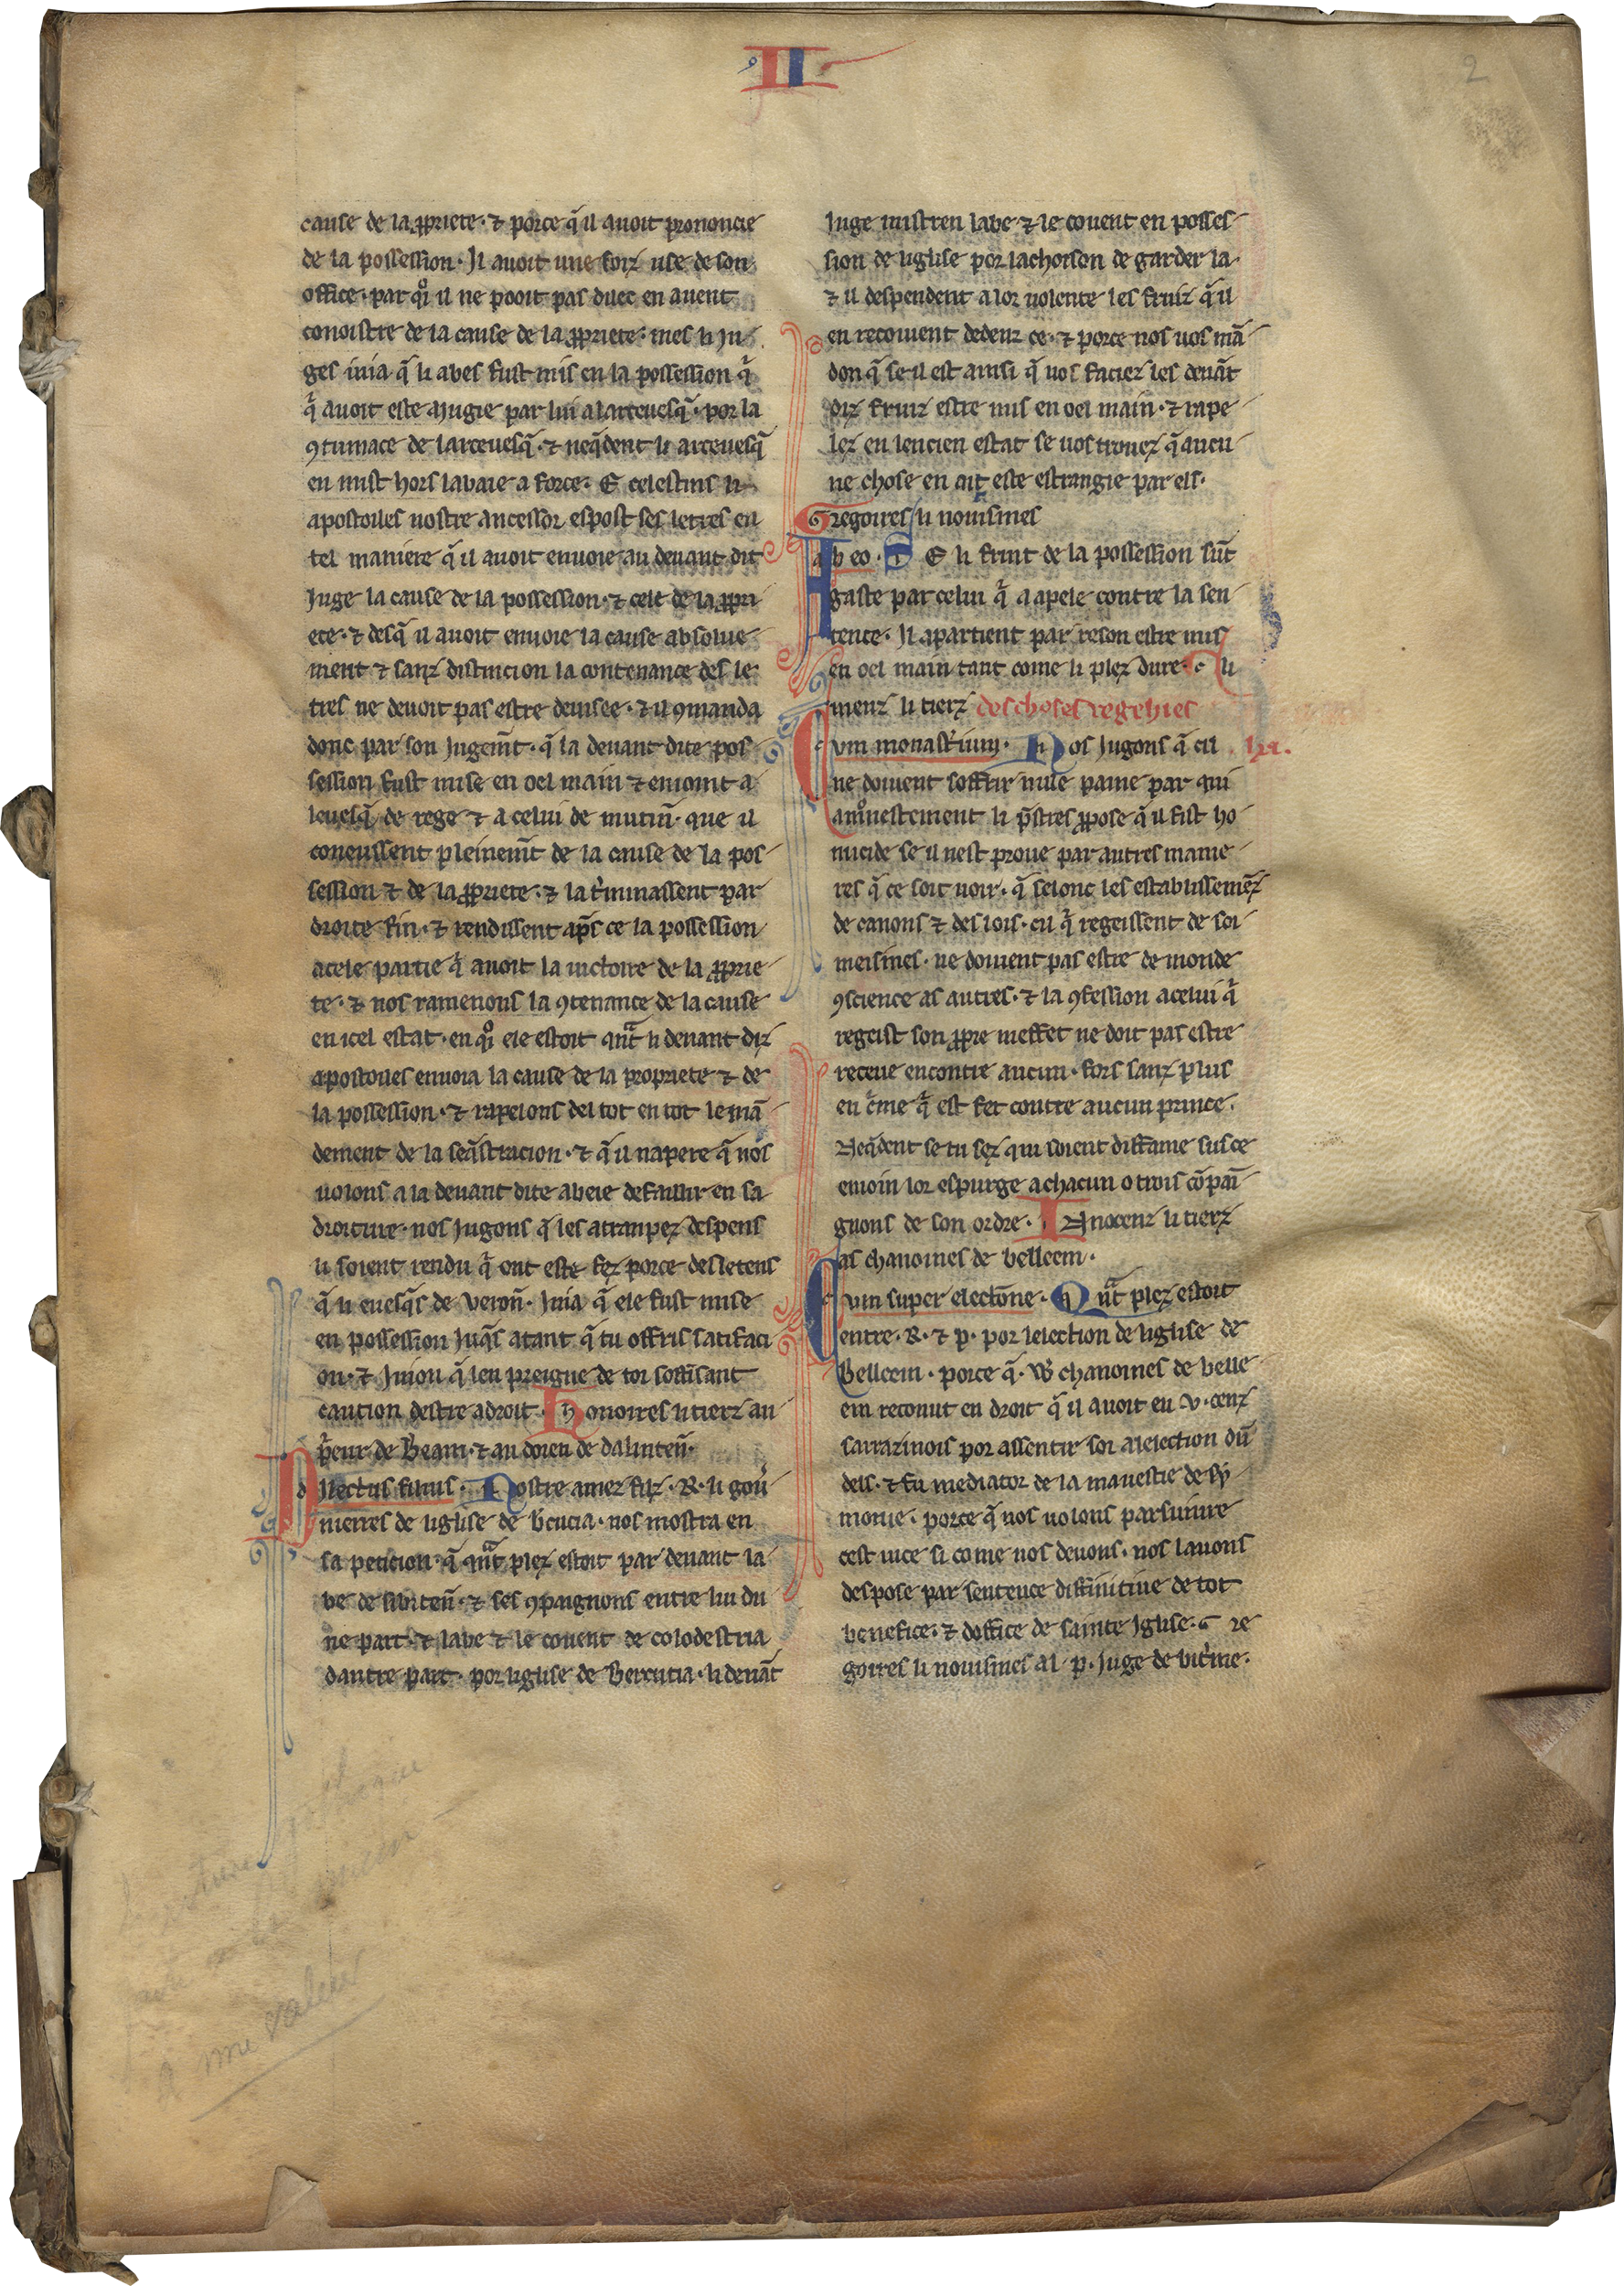 II
2
cause de la ꝓpriete · ⁊ porce q̃ il auoit prononcie
de la possession · Il auoit une foiz use de son
office · par qͦi il ne pooit pas duec en auent
conoistre de la cause de la ꝓpriete · mes li iu
ges iuia q̃ li abes fust mis en la possession q̃
q̃ auoit este aiugie par lui a larceuesq̃ · por la
ꝯtumace de larceuesq̃ · ⁊ neq̃dent li arceuesq̃
en mist hors labaie a force · E celestins li
apostoiles nostre ancessor espost ses letres en
tel maniere q̃ il auoit enuoie au deuant dit
Iuge la cause de la possession · ⁊ cele de la ꝓpri
ete · ⁊ desq̃ il auoit enuoie la cause absolue
ment ⁊ sanz distincion la contenance des le
tres ne deuoit pas estre deuisee · ⁊ il ꝯmanda
donc par son iugem̃t · q̃ la deuant dite pos
session fust mise en oel main ⁊ enioint a
leuesq̃ de rege ⁊ a celui de mutin̄ · que il
coneussent pleinem̃t de la cause de la pos
session ⁊ de la ꝓpriete · ⁊ la t̃minassent par
droite fin · ⁊ rendissent apr̃s ce la possession
a cele partie q̃ auoit la uictoire de la ꝓprie
te · ⁊ nos ramenons la ꝯtenance de la cause
en icel estat · en qͦi ele estoit qñt li deuant diz
apostoiles enuoia la cause de la propriete ⁊ de
la possession · ⁊ rapelons del tot en tot le mã
dement de la seq̃stracion · ⁊ q̃ il napere q̃ nos
uoions a la deuant dite abeie defaillir en sa
droiture · nos iugons q̃ les atrampez despens
li soient rendu q̃ ont este fez porce des letens
q̃ li euesq̃s de veron̄ · iuia q̃ ele fust mise
en possession iuq̃s atant q̃ tu offris satifaci
on · ⁊ iuion q̃ len preigne de toi soffisant
caution destre a droit · Honoires li tierz au
p̃eur de Beam · ⁊ au doien de dalinten̄ ·
Dilectus filius · Nostre amez filz · R · li gou̾
nierres de liglise de b̾cucia · nos mostra en
sa peticion · q̃ qñt plez estoit par deuant la
be de sibiten̄ · ⁊ ses ꝯpaignons entre lui du
ne part · ⁊ labe ⁊ le couent de colodestria
dautre part · por liglise de Bercucia · li deuãt
Iuge mistren labe ⁊ le couent en posses
sion de liglise por lachoison de garder la ·
⁊ il despendent a lor uolente les fruiz q̃ il
en recoiuent dedenz ce · ⁊ porce nos uos mã
don q̃ se il est ainsi q̃ uos faciez les deuãt
diz fruiz estre mis en oel main · ⁊ rape
lez en lencien estat se uos trouez q̃ aucu
ne chose en ait este estrangie par els ·
Gregoires li nouismes
Ab eo · SE li fruit de la possession sũt
gaste par celui q̃ a apele contre la sen
tence · Il apartient par reson estre mis
en oel main tant come li plez dure · Cli
menz li tierz des choses regehies
Cum monast̾ium · Nos iugons q̃ cil
ne doiuent soffrir nule paine par qui
amͦnestement li p̃stres ꝓpose q̃ il fist ho
micide se il nest proue par autres manie
res q̃ ce soit uoir · q̃ selonc les establissemẽz
de canons ⁊ des lois · cil q̃ regeissent de soi
meismes · ne doiuent pas estre de monde
ꝯscience as autres · ⁊ la ꝯfession a celui q̃
regeist son ꝓpre meffet ne doit pas estre
receue encontre aucun · fors sanz plus
en c̃me q̃ est fet contre aucun prince ·
Neq̃dent se tu sez qui soient diffame sus ce
enioin lor espurge a chacun o trois cõpai
gnons de son ordre · Innocenz li tierz
as chanoines de belleem ·
Cum super electõne · Qñt plez estoit
entre · R · ⁊ p · por lelection de liglise de
Belleem · porce q̃ · W chanoines de belle
em reconut en droit q̃ il auoit eu v · cenz
sarrazinois por assentir soi a lelection dũ
dels · ⁊ fu mediator de la mauestie de sy
monie · porce q̃ nos uolons parsuiure
cest uice si come nos deuons · nos lauons
despose par sentence diffinitiue de tot
benefice · ⁊ doffice de sainte iglise · Gre
goires li nouismes al · p · iuge de vit̾me ·